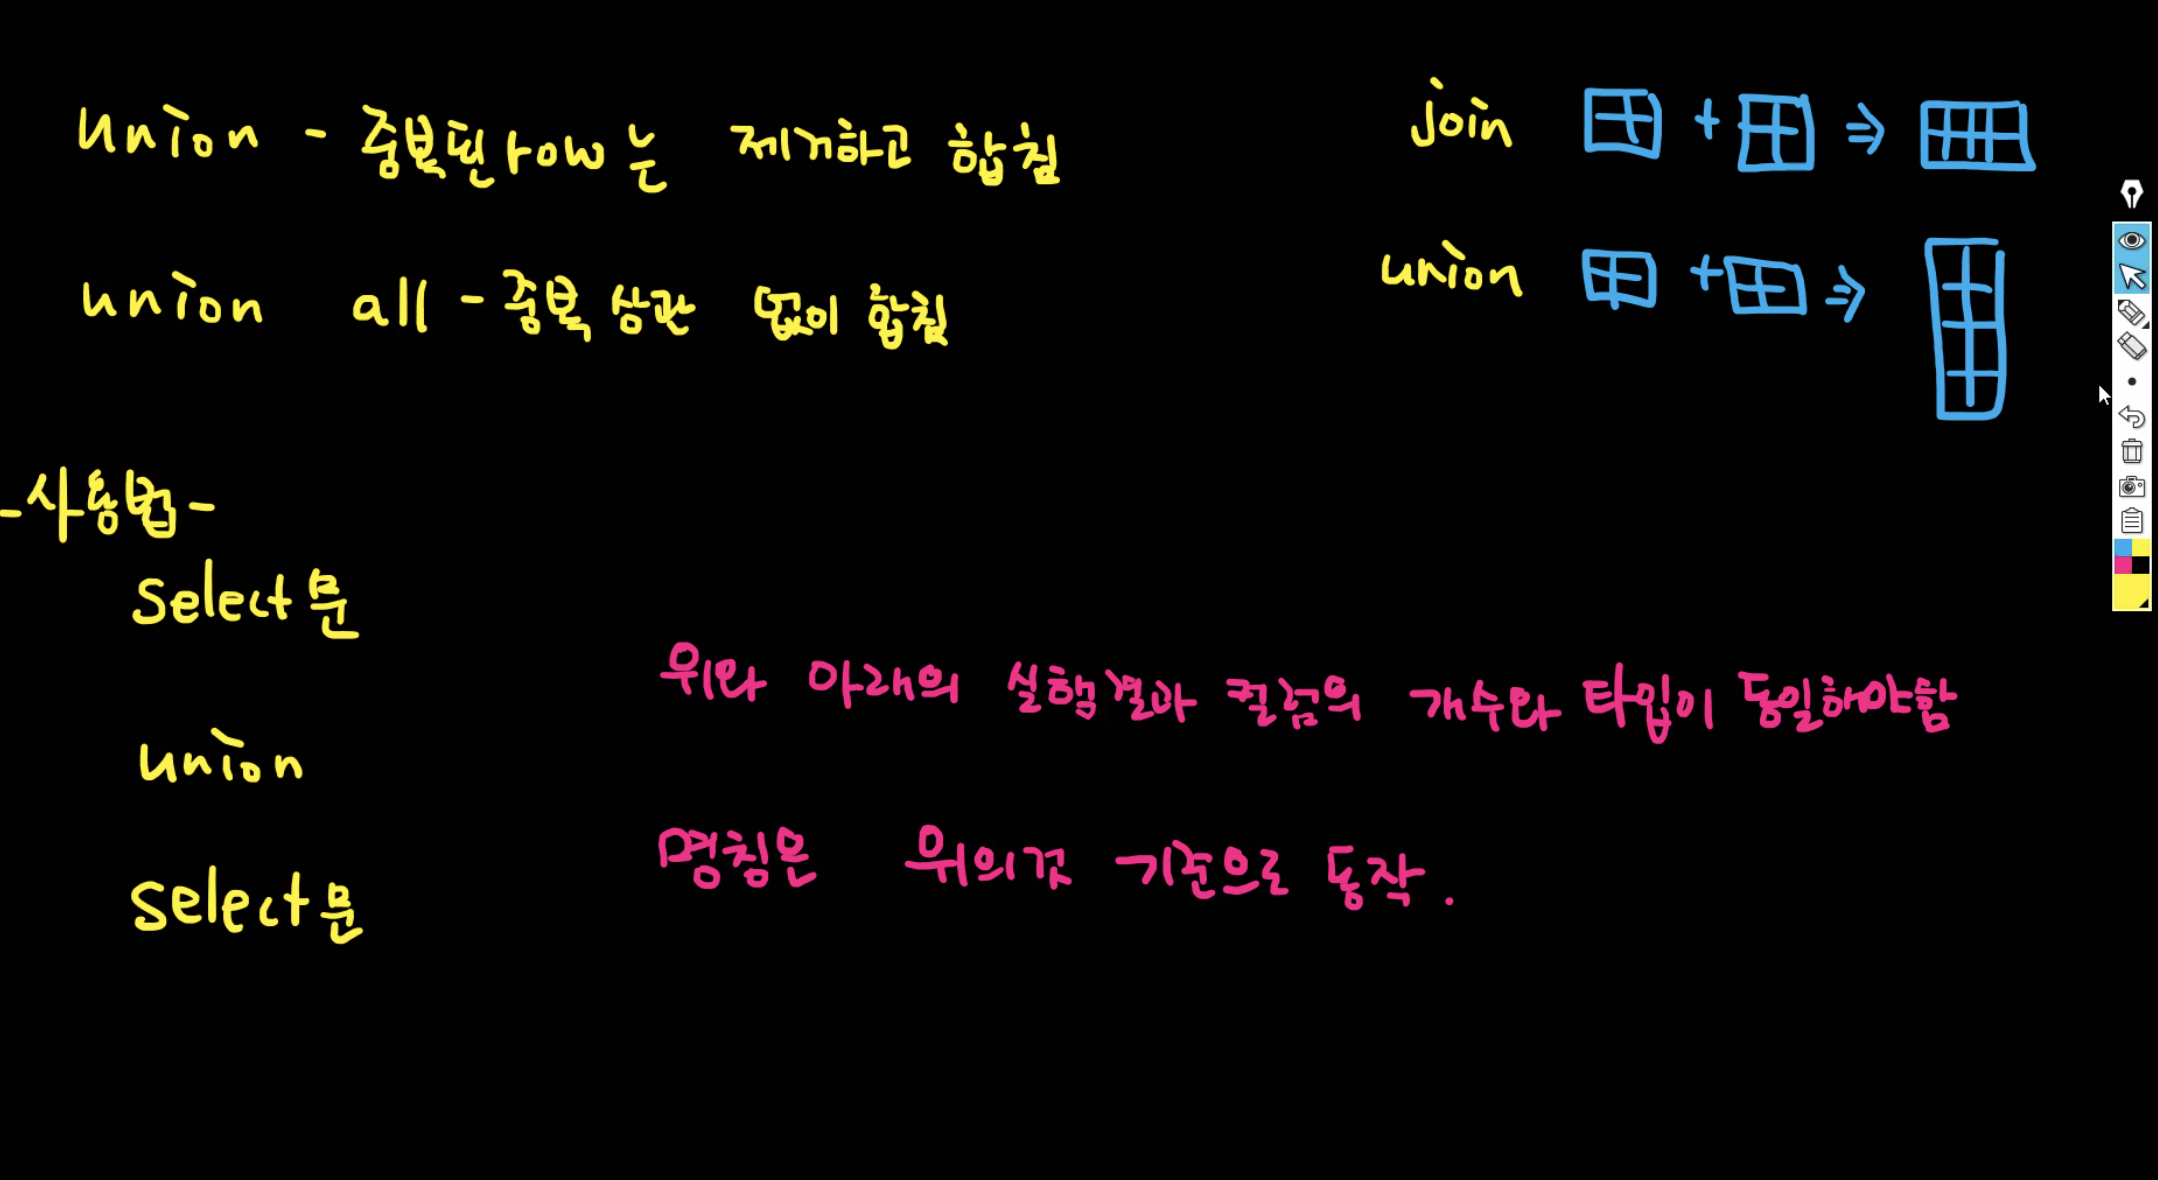 union - 중복된 row는 제거하고 합침
union all - 중복 상관 없이 합침
join + ⇒
union + ⇒
-사용법-
select문
union
select문
위와 아래의 실행결과 컬럼의 개수와 타입이 동일해야함
명칭은 위의것 기준으로 동작.